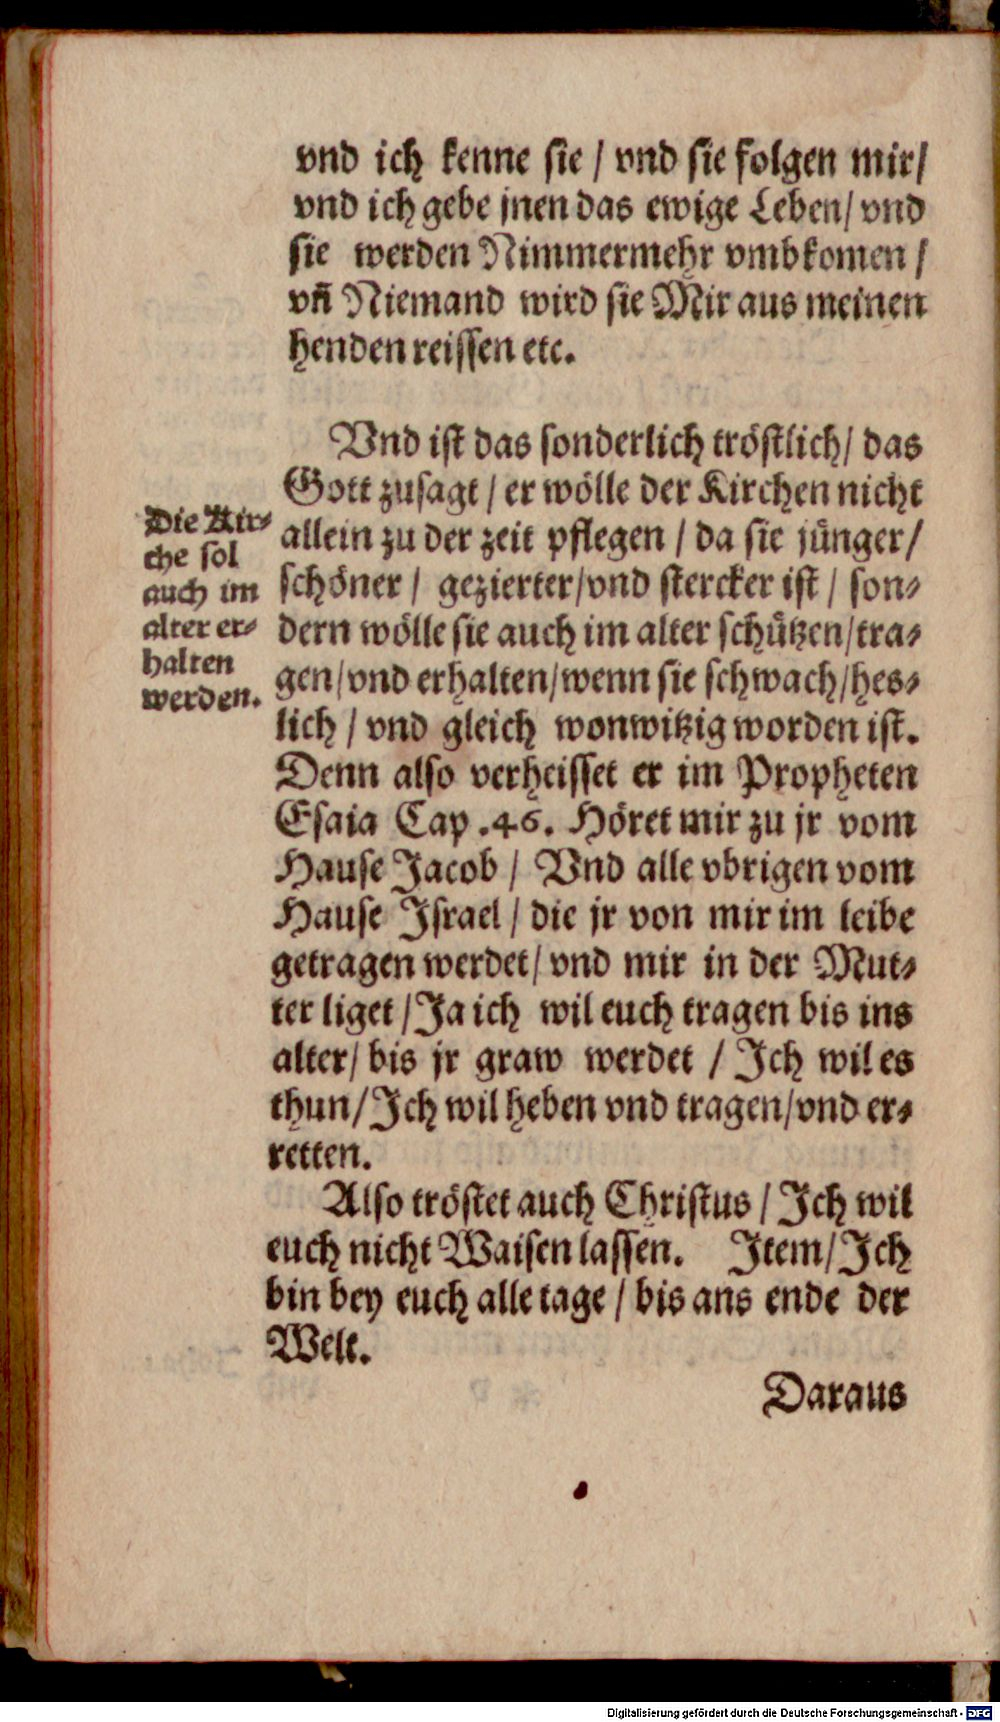 vnd ich kenne sie / vnd sie folgen mir/
vnd ich gebe jnen das ewige Leben/ vnd
sie werden Nimmermehr vmbkomen /
vñ Niemand wird sie Mir aus meinen
henden reissen etc.
Vnd ist das sonderlich tröstlich/ das
Gott zusagt / er wölle der Kirchen nicht
allein zu der zeit pflegen / da sie jünger/
schöner / gezierter/vnd stercker ist / son⸗
dern wölle sie auch im alter schützen/tra⸗
gen/vnd erhalten/wenn sie schwach/hes⸗
lich / vnd gleich wonwitzig worden ist.
Denn also verheisset er im Propheten
Esaia Cap .46. Höret mir zu jr vom
Hause Jacob / Vnd alle vbrigen vom
Hause Israel / die jr von mir im leibe
getragen werdet/ vnd mir in der Mut⸗
ter liget / Ja ich wil euch tragen bis ins
alter/ bis jr graw werdet / Ich wil es
thun/ Ich wil heben vnd tragen/vnd er⸗
retten.
Die Kir⸗
che sol
auch im
alter er⸗
halten
werden.
Also tröstet auch Christus / Ich wil
euch nicht Waisen lassen. Item/ Ich
bin bey euch alle tage / bis ans ende der
Welt.
Daraus
Digitalisierung gefördert durch die Deutsche Forschungsgemeinschaft - DFG